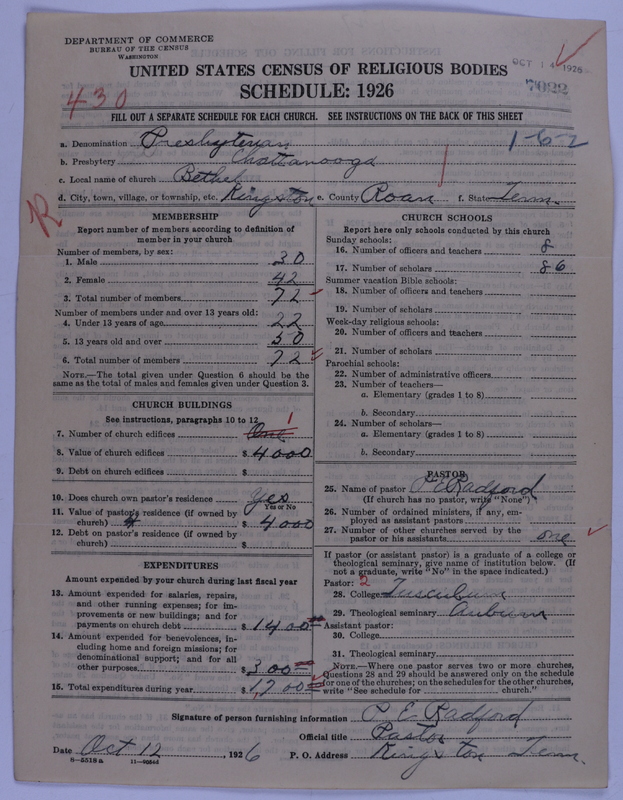 DEPARTMENT OF COMMERCE
BUREAU OF THE CENSUS
WASHINGTON
OCT 14 1926
7022
UNITED STATES CENSUS OF RELIGIOUS BODIES
SCHEDULE: 1926
430
FILL OUT A SEPARATE SCHEDULE FOR EACH CHURCH. SEE INSTRUCTIONS ON THE BACK OF THIS SHEET
a. Denomination Presbyterian
1-6-2
b. Presbytery Chattanooga
c. Local name of church Bethel
d. City, town, village, or township, etc. Kingston e. County Roan f. State Tenn.
R
MEMBERSHIP
Report number of members according to definition of
member in your church
Number of members, by sex:
1. Male 30
2. Female 42
3. Total number of members 72
Number of members under and over 13 years old:
4. Under 13 years of age 22
5. 13 years old and over 50
6. Total number of members 72
NOTE.—The total given under Question 6 should be the
same as the total of males and females given under Question 3.
CHURCH BUILDINGS
See instructions, paragraphs 10 to 12
7. Number of church edifices One 1
8. Value of church edifices $ 4000
9. Debt on church edifices $
10. Does church own pastor's residence Yes
Yes or No
11. Value of pastor's residence (if owned by
church) $ 4000
12. Debt on pastor's residence (if owned by
church) $
EXPENDITURES
Amount expended by your church during last fiscal year
13. Amount expended for salaries, repairs,
and other running expenses; for im-
provements or new buildings; and for
payments on church debt $ 1400
14. Amount expended for benevolences, in-
cluding home and foreign missions; for
denominational support; and for all
other purposes $ 300
15. Total expenditures during year $ 1700
CHURCH SCHOOLS
Report here only schools conducted by this church
Sunday schools:
16. Number of officers and teachers 8
17. Number of scholars 86
Summer vacation Bible schools:
18. Number of officers and teachers
19. Number of scholars
Week-day religious schools:
20. Number of officers and teachers
21. Number of scholars
Parochial schools:
22. Number of administrative officers
23. Number of teachers—
a. Elementary (grades 1 to 8)
b. Secondary
24. Number of scholars—
a. Elementary (grades 1 to 8)
b. Secondary
PASTOR
25. Name of pastor P E Radford
(If church has no pastor, write "None")
26. Number of ordained ministers, if any, em-
ployed as assistant pastors
27. Number of other churches served by the
pastor or his assistants one
If pastor (or assistant pastor) is a graduate of a college or
theological seminary, give name of institution below. (If
not a graduate, write "No" in the space indicated.)
Pastor: 2
28. College Tusculum
29. Theological seminary Auburn
Assistant pastor:
30. College
31. Theological seminary
NOTE.—Where one pastor serves two or more churches,
Questions 28 and 29 should be answered only on the schedule
for one of the churches; on the schedules for the other churches,
write "See schedule for church."
Signature of person furnishing information P. E. Radford
Official title Pastor
Date Oct 12, 1926 P. O. Address Kingston Tenn.
8-5518a